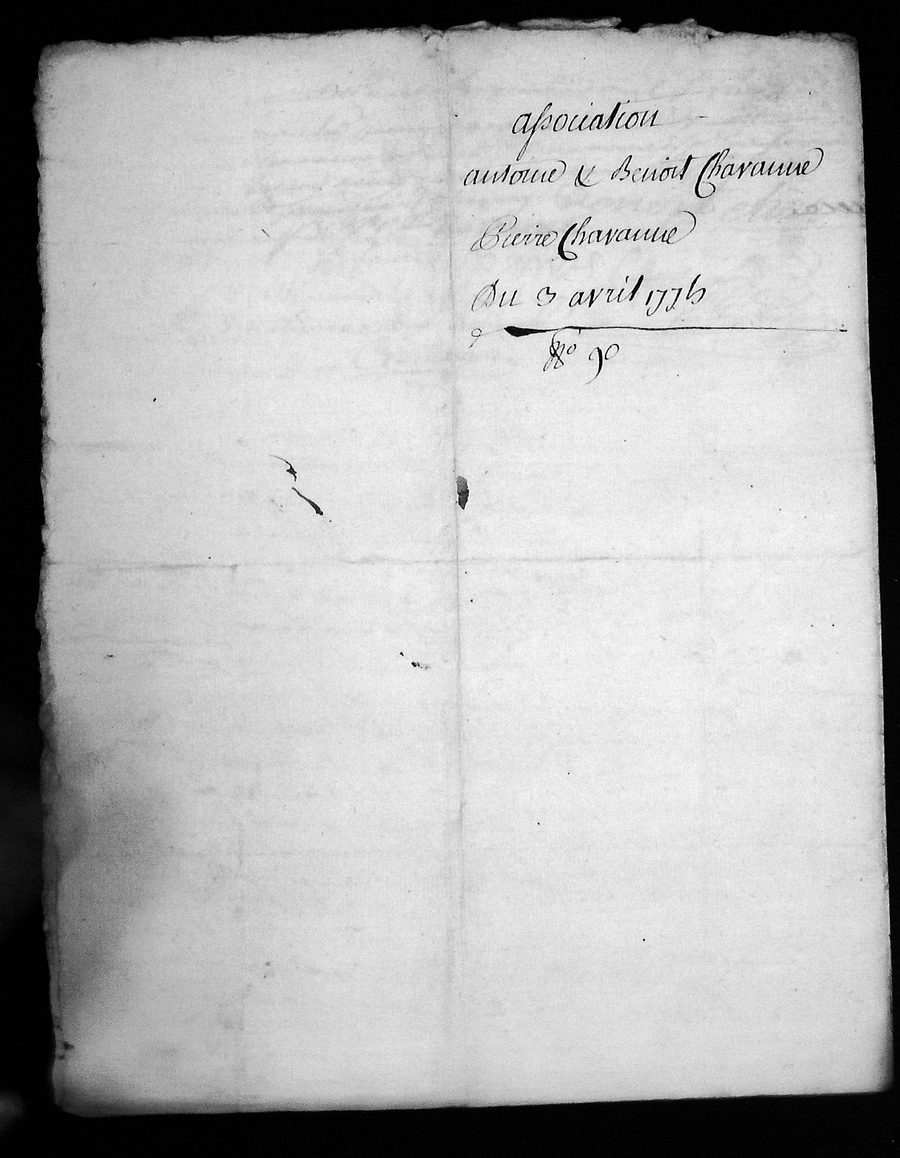 association
antoine & Benoit Chavanne
Pierre Chavanne
Du 3 avril 1775
No 90